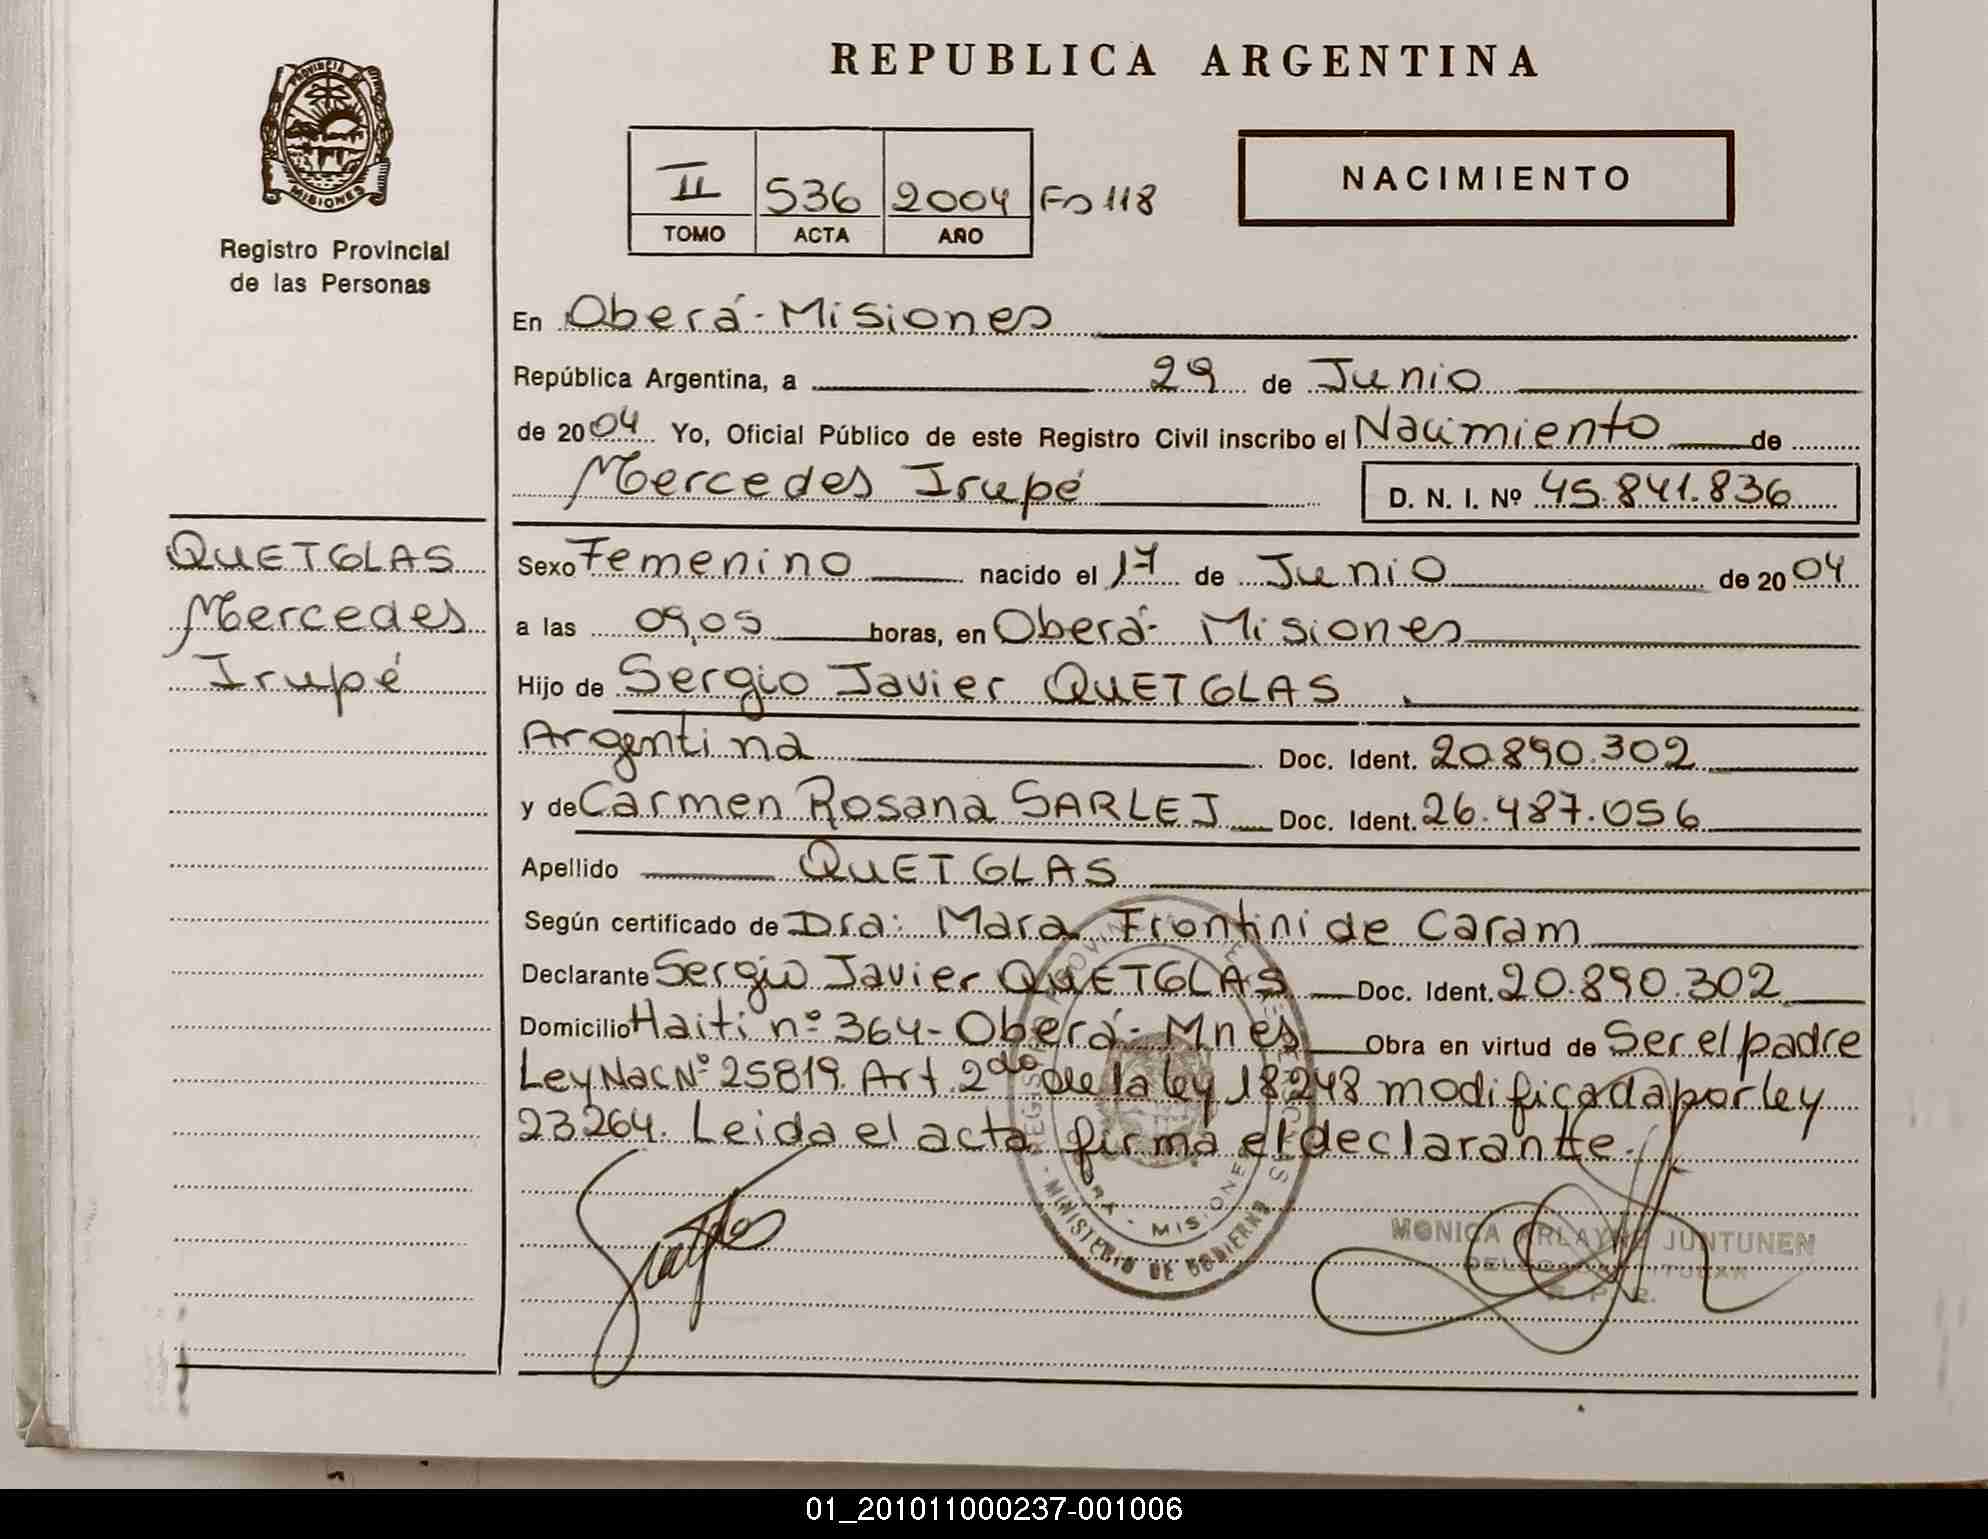 REPUBLICA ARGENTINA
PROVINCIA DE
MISIONES
Registro Provincial
de las Personas
II 536 2004 Fo 118
TOMO ACTA AÑO
NACIMIENTO
En Oberá - Misiones
República Argentina, a 29 de Junio
de 2004 Yo, Oficial Público de este Registro Civil inscribo el Nacimiento de
Mercedes Irupé D. N. I. Nº 45.841.836
QUETGLAS
Mercedes
Irupé
Sexo Femenino nacido el 17 de Junio de 2004
a las 09,05 horas, en Oberá - Misiones
Hijo de Sergio Javier QUETGLAS
Argentina Doc. Ident. 20.890.302
y de Carmen Rosana SARLEJ Doc. Ident. 26.487.056
Apellido QUETGLAS
Según certificado de Dra: Mara Frontini de Caram
Declarante Sergio Javier QUETGLAS Doc. Ident. 20.890.302
Domicilio Haití nº 364 - Oberá - Mnes Obra en virtud de Ser el padre
Ley Nac Nº 25819. Art. 2do de la ley 18248 modificada por ley
23264. Leida el acta firma el declarante.
MISIONES
MINISTERIO DE GOBIERNO
MONICA JUNTUNEN
01_201011000237-001006